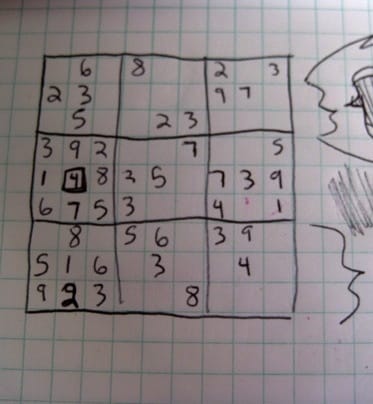 6 8 2 3
2 3 9 7
5 2 3
3 9 2 7 5
1 4 8 2 5 7 3 9
6 7 5 3 4 1
8 5 6 3 9
5 1 6 3 4
9 2 3 8